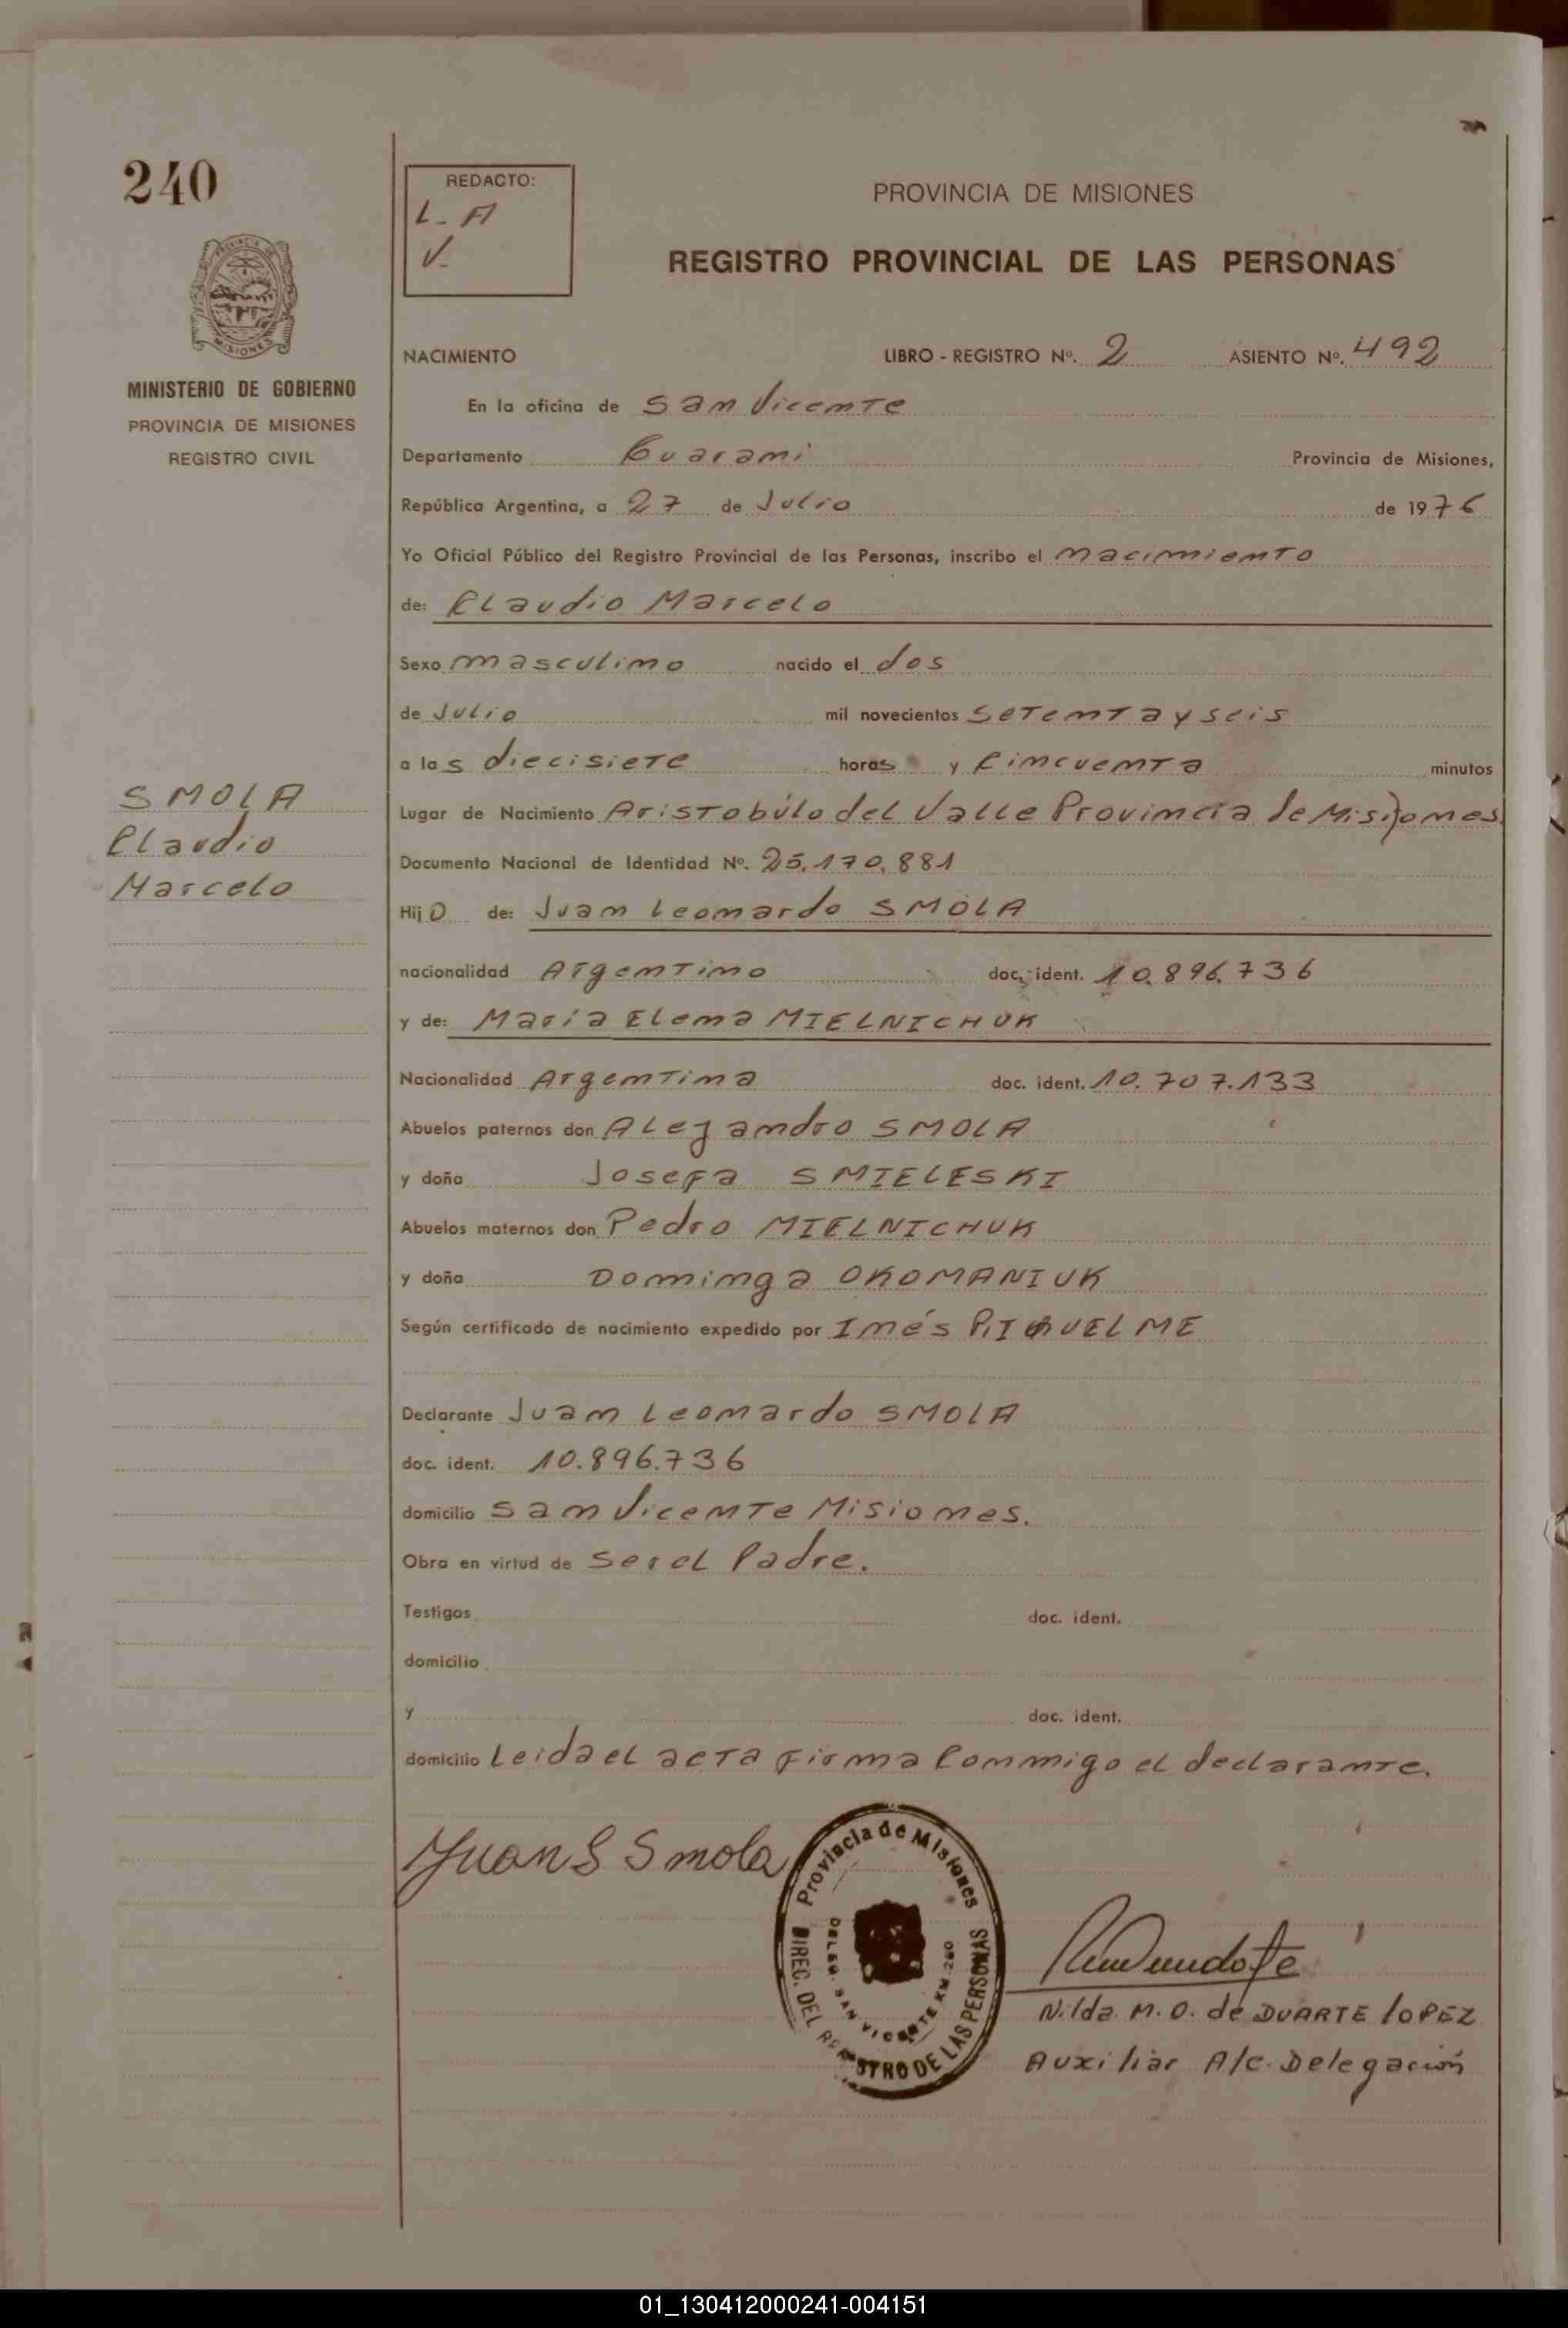 240
REDACTO:
L. A
V.
PROVINCIA DE MISIONES
REGISTRO PROVINCIAL DE LAS PERSONAS
PROVINCIA DE
MISIONES
MINISTERIO DE GOBIERNO
PROVINCIA DE MISIONES
REGISTRO CIVIL
NACIMIENTO LIBRO - REGISTRO Nº. 2 ASIENTO Nº. 492
En la oficina de San Vicente
Departamento Guarani Provincia de Misiones,
República Argentina, a 27 de Julio de 1976
Yo Oficial Público del Registro Provincial de las Personas, inscribo el nacimiento
de: Claudio Marcelo
Sexo masculino nacido el dos
de Julio mil novecientos setenta y seis
a las diecisiete horas y Cincuenta minutos
SMOLA
Claudio
Marcelo
Lugar de Nacimiento Aristobúlo del Valle Provincia de Misiones
Documento Nacional de Identidad Nº. 25.170.881
Hijo de: Juan Leonardo SMOLA
nacionalidad Argentino doc. ident. 10.896.736
y de: María Elena MIELNICHUK
Nacionalidad Argentina doc. ident. 10.707.133
Abuelos paternos don Alejandro SMOLA
y doña Josefa SMIELESKI
Abuelos maternos don Pedro MIELNICHUK
y doña Dominga OKOMANIUK
Según certificado de nacimiento expedido por Inés
Declarante Juan Leonardo SMOLA
doc. ident. 10.896.736
domicilio San Vicente Misiones.
Obra en virtud de ser el Padre.
Testigos doc. ident.
domicilio
y doc. ident.
domicilio Leida el acta firma Conmigo el declarante.
Juan L Smola
Provincia de Misiones
DIREC. DEL REGISTRO DE LAS PERSONAS
DELEG. SAN VICENTE KM. 260
Nilda M. O. de DUARTE LOPEZ
Auxiliar A/c. Delegación
01_130412000241-004151